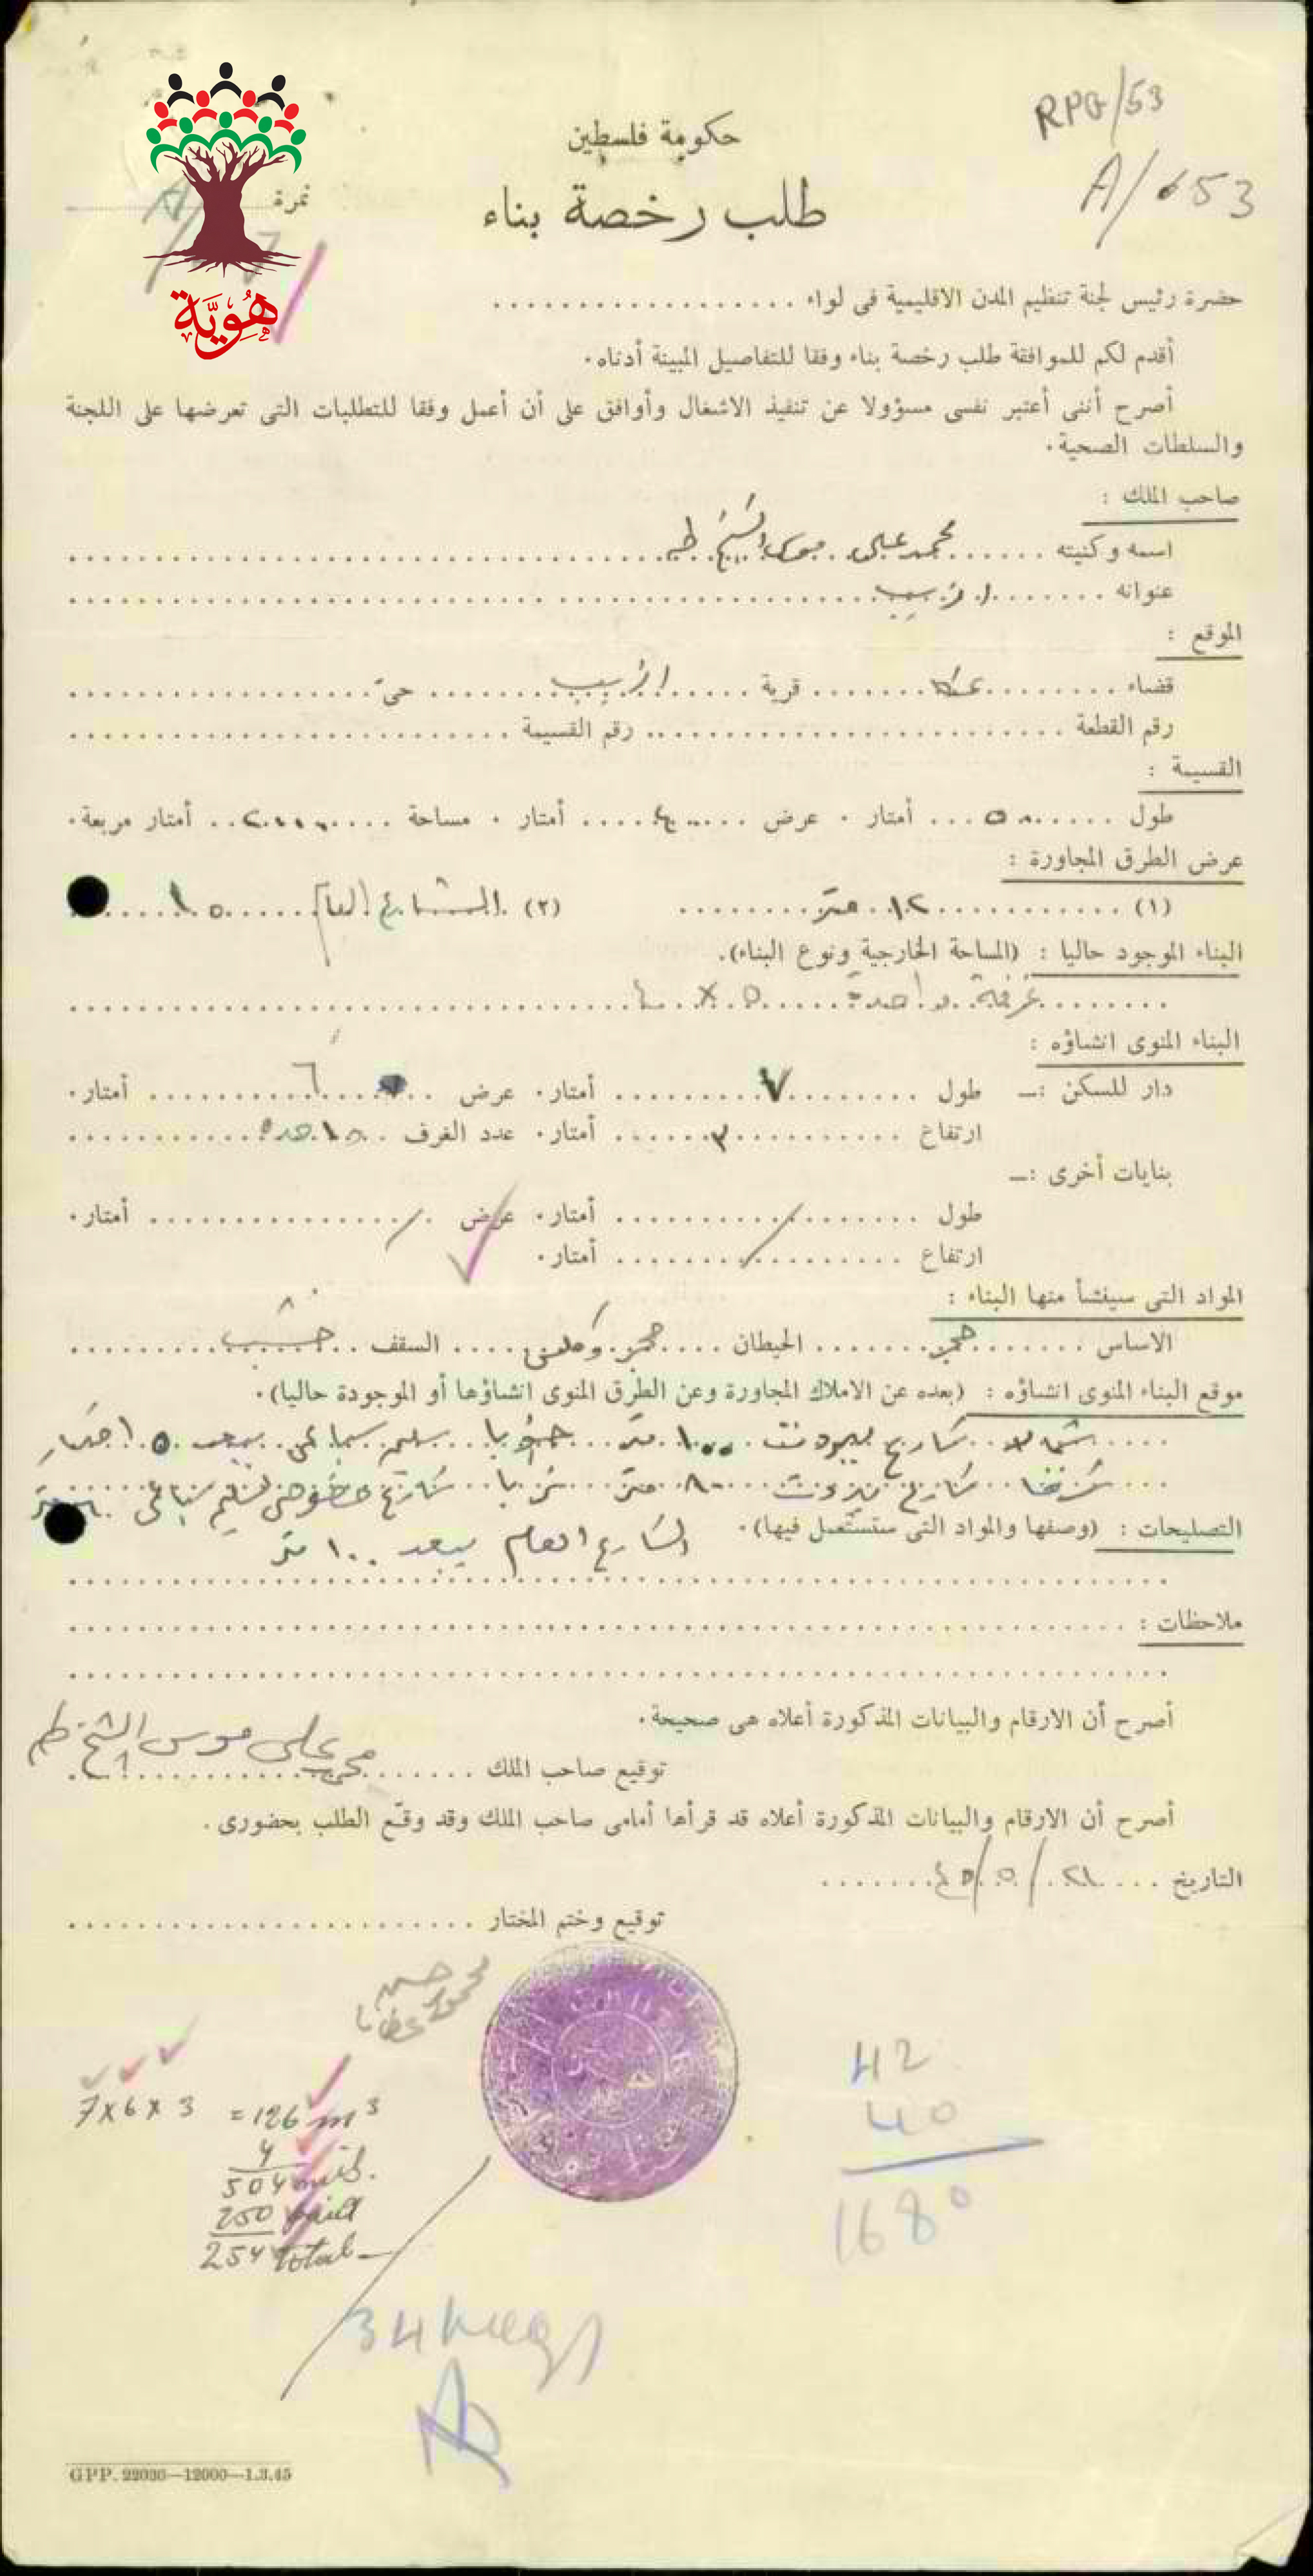 RPG/53
A/653
حكومة فلسطين
طلب رخصة بناء
نمرة
هُويَّة
حضرة رئيس لجنة تنظيم المدن الاقليمية فى لواء ..................
أقدم لكم للموافقة طلب رخصة بناء وفقا للتفاصيل المبينة أدناه.
أصرح أننى أعتبر نفسى مسؤولا عن تنفيذ الاشغال وأوافق على أن أعمل وفقا للمتطلبات التى تعرضها على اللجنة
والسلطات الصحية.
صاحب الملك :
اسمه وكنيته ...... محمد علي موسى الشيخ طه
عنوانه ....... الزيب
الموقع :
قضاء ........ عكا ....... قرية ..... الزيب ........ حىّ
رقم القطعة ........ رقم القسيمة ........
القسيمة :
طول ...... ٥٠ ... أمتار . عرض ... ٤٠ .... أمتار . مساحة .... ٢٠٠٠ .. أمتار مربعة.
عرض الطرق المجاورة :
(١) ........ ١٢ متر ........ (٢) الشارع العام ...... ١٥
البناء الموجود حاليا : (المساحة الخارجية ونوع البناء).
غرفة واحدة ..... ٥ × ٤
البناء المنوى انشاؤه :
دار للسكن :— طول ........ ٧ ........ أمتار. عرض ...... ٦ ........ أمتار.
ارتفاع ........ ٣ ...... أمتار. عدد الغرف .. واحده
بنايات أخرى :—
طول ......../........ أمتار. عرض ./............ أمتار.
ارتفاع ......../........ أمتار.
المواد التى سينشأ منها البناء :
الاساس ...... حجر ....... الحيطان .... حجر وكلس .... السقف .. خشب
موقع البناء المنوى انشاؤه : (بعده عن الاملاك المجاورة وعن الطرق المنوى انشاؤها أو الموجودة حاليا).
شمالا شارع بيروت ١٠٠ متر جنوبا سليم سباعي يبعد ١٥ امتار
شرقا شارع بيروت ٨٠ متر غربا شارع سليم سباعي
التصليحات : (وصفها والمواد التى ستستعمل فيها). الشارع العام يبعد ١٠٠ متر
ملاحظات :
أصرح أن الارقام والبيانات المذكورة أعلاه هى صحيحة.
توقيع صاحب الملك ....... محمد علي موسى الشيخ طه
أصرح أن الارقام والبيانات المذكورة أعلاه قد قرأها أمامى صاحب الملك وقد وقّع الطلب بحضورى.
التاريخ .... ٢١/٥/٤٥
توقيع وختم المختار
محمود حسن عطايا
7 x 6 x 3 = 126 m³
4
504 mils.
250 paid
254 total
42
40
1680
GPP. 22030—12000—1.3.45